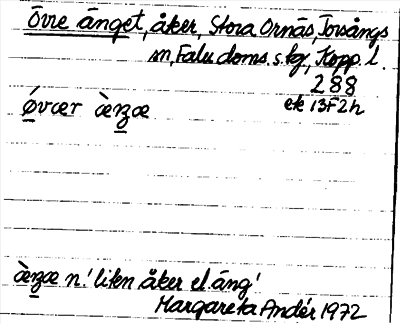 Övre änget, åker, Stora Ornäs, Torsångs
sn, Falu doms. s. tg, Kopp. l.
288
ek 13F2h
øvær æ̀nʒæ
æ̀nʒæ n. 'liten åker el äng'
Margareta Andér 1972